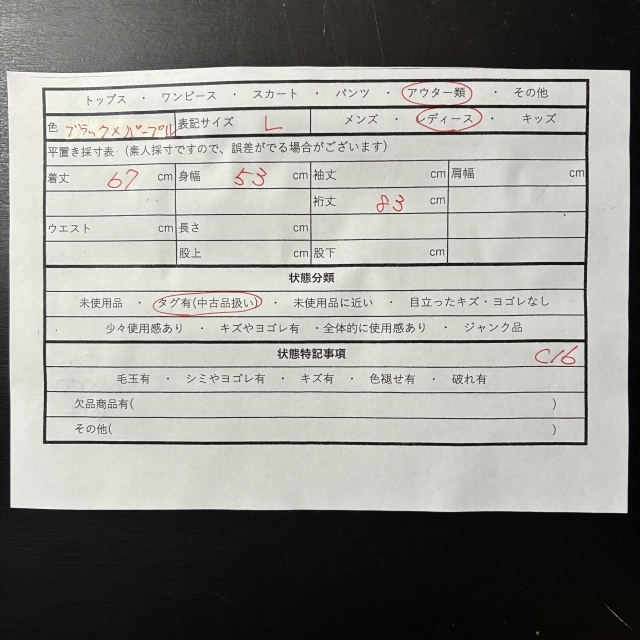 トップス ・ ワンピース ・ スカート ・ パンツ ・ アウター類 ・ その他
色 ブラック×パープル 表記サイズ L メンズ ・ レディース ・ キッズ
平置き採寸表 （素人採寸ですので、誤差がでる場合がございます）
着丈 67 cm 身幅 53 cm 袖丈 cm 肩幅 cm
裄丈 83 cm
ウエスト cm 長さ cm
股上 cm 股下 cm
状態分類
未使用品 ・ タグ有(中古品扱い) ・ 未使用品に近い ・ 目立ったキズ・ヨゴレなし
・ 少々使用感あり ・ キズやヨゴレ有 ・全体的に使用感あり ・ ジャンク品
状態特記事項 C16
毛玉有 ・ シミやヨゴレ有 ・ キズ有 ・ 色褪せ有 ・ 破れ有
欠品商品有( )
その他( )